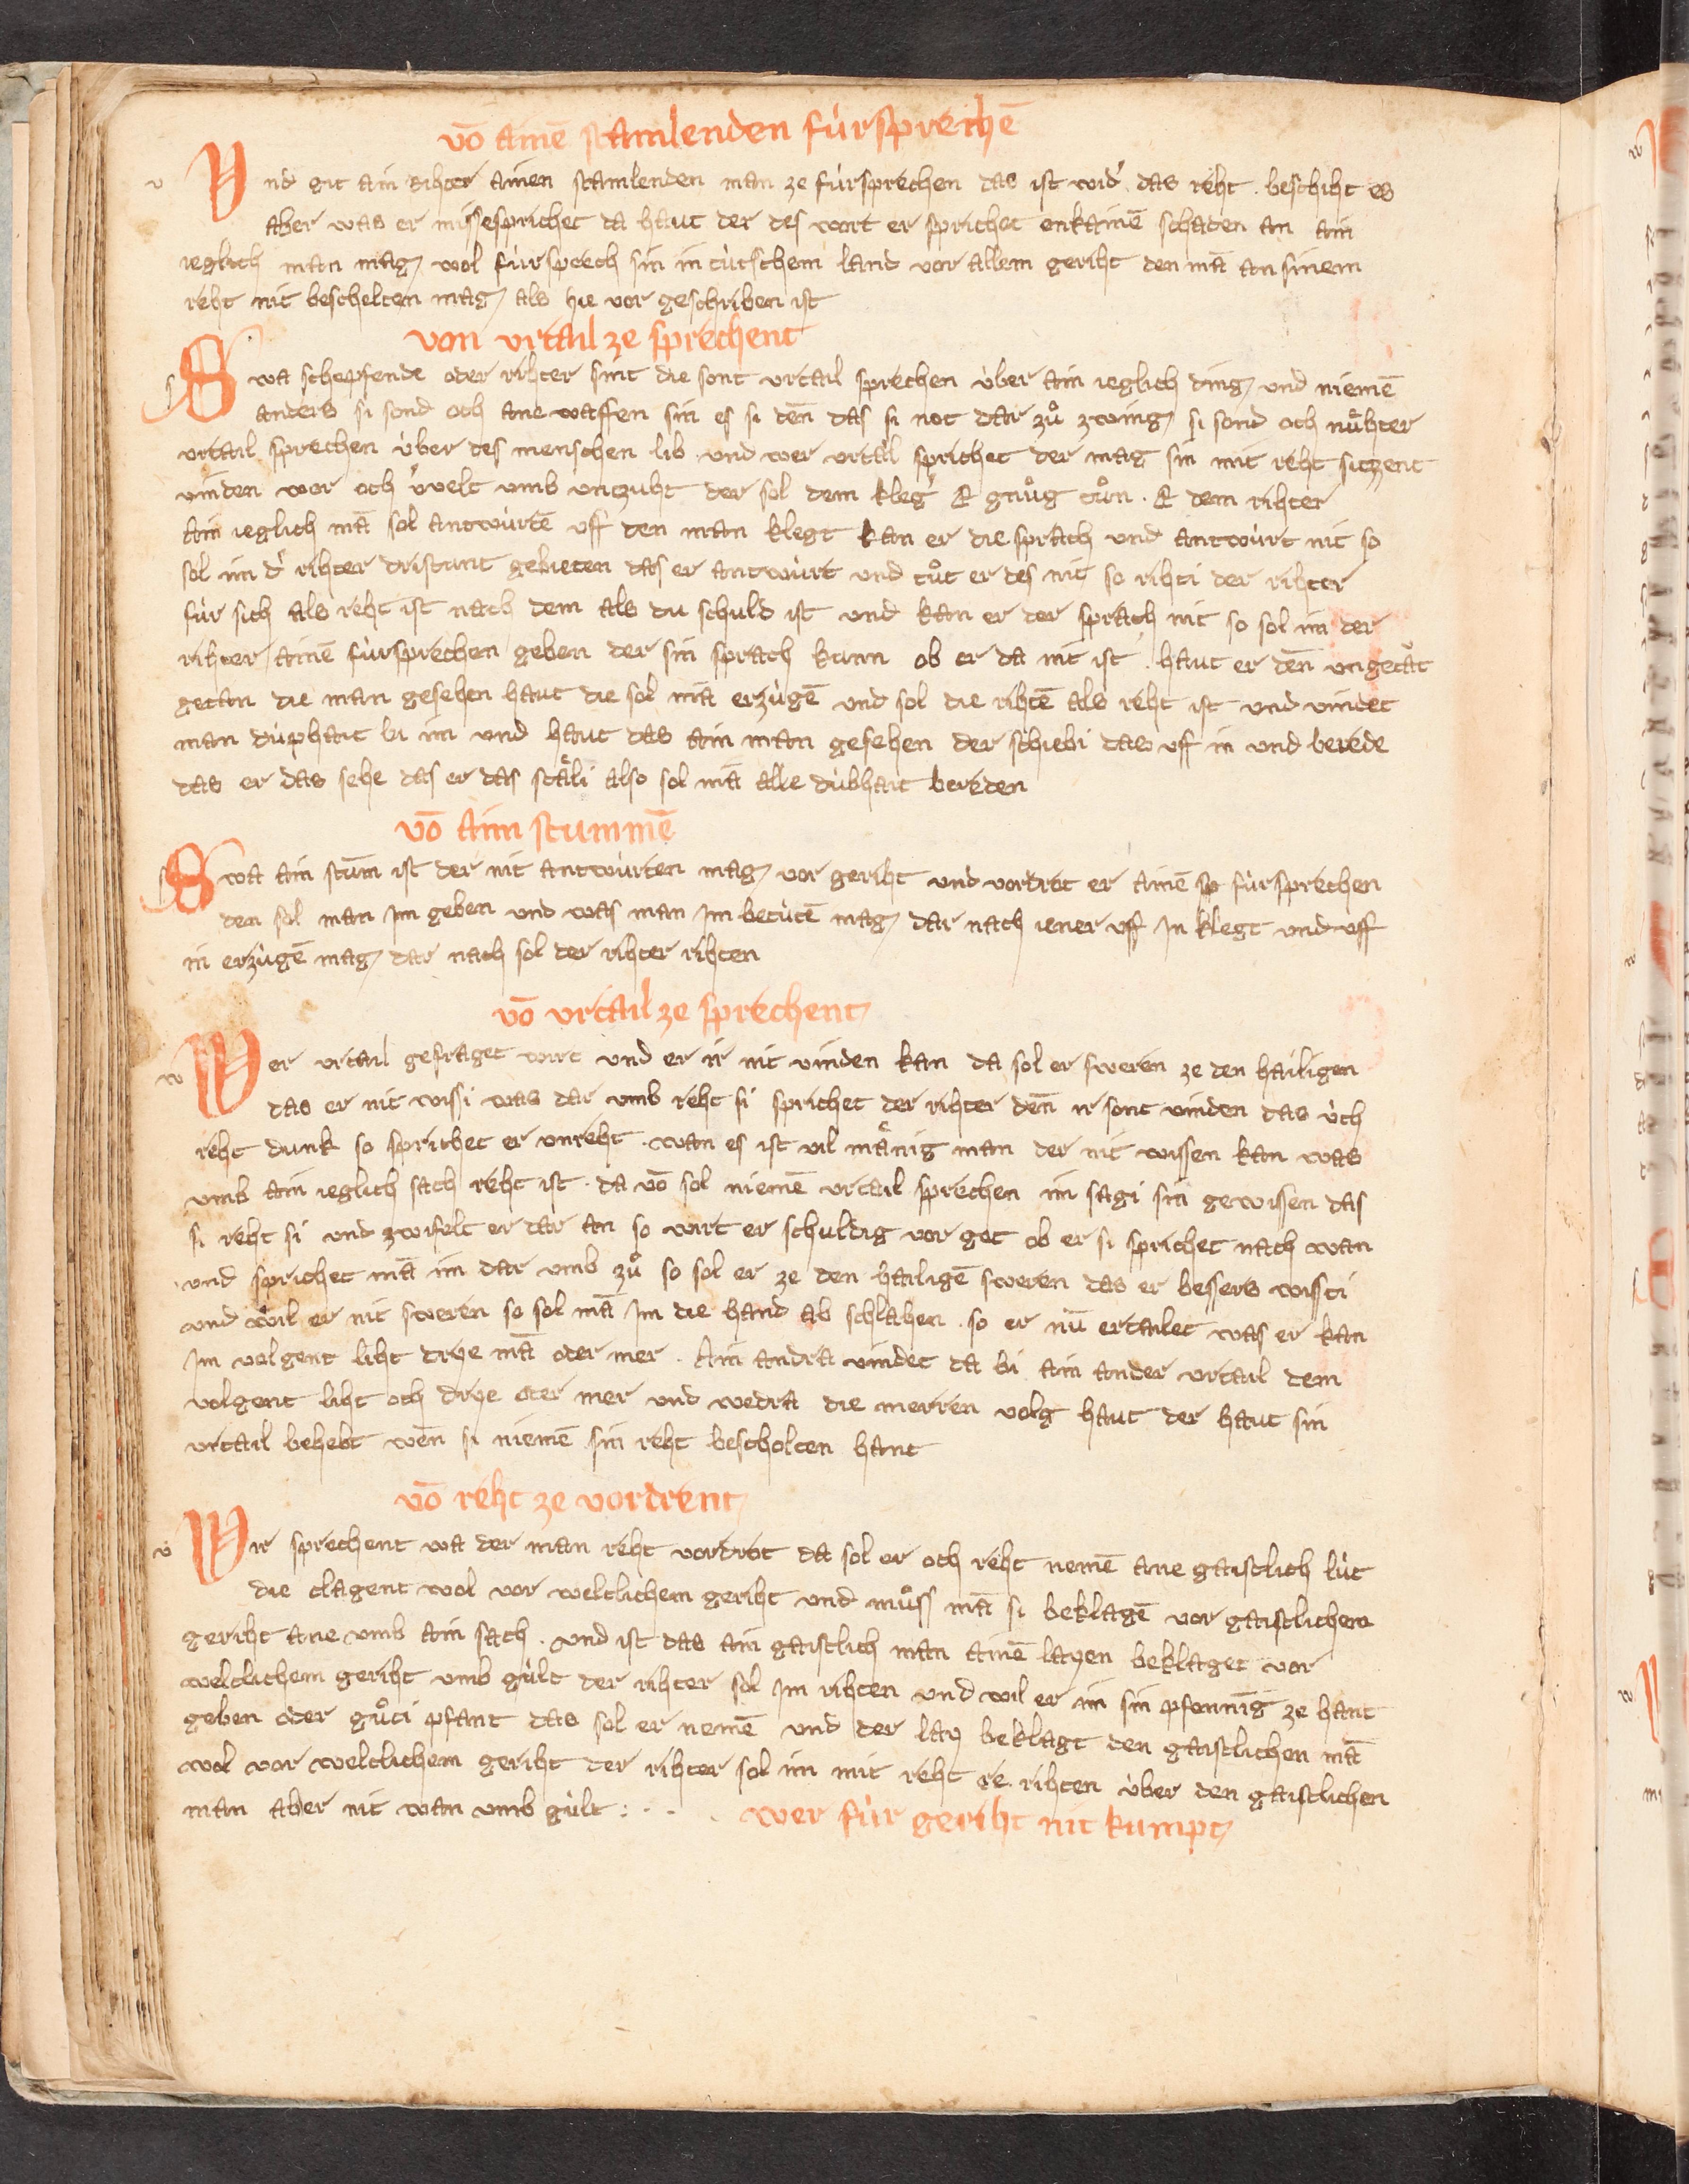 võ ainē stamlenden fúrsprechē
Vnd git ain rihter ainen stamlenden man ze fúrsprechen das ist wid' das reht . beschiht es
aber was er missesprichet da haut der des wort er sprichet enkainē schaden an ain
ieglich man mag wol fúrsprech sin in tútschem land vor allem geriht den mā an sinem
reht nit beschelten mag als hie vor geschriben ist
von vrtail ze sprechent
Swa schepfende oder rihter sint die sont vrtail sprechen úber ain ieglich ding und niemē
anders si sond och ane waffen sin es si deñ das si not dar zuͦ zwing si sond och nuͤhter
vrtail sprechen úber des menschen lib . und wer vrtail sprichet der mag sin mit reht sitzent
vinden wer och úvelt vmb vntzuht der sol dem kleg' & gnuͦg tuͦn . & dem rihter
Ain ieglich mā sol antwúrtē vff den man klegt kan er die sprach und antwúrt nit so
sol im d' rihter dristunt gebieten das er antwúrt und tuͦt er des nit so rihti der rihter
fúr sich als reht ist nach dem als du schuld ist und kan er der sprach nit so sol im der
rihter ainē fúrsprechen geben der sin sprach kunn ob er da nit ist . haut er deñ vngetaͤt
getan die man gesehen haut die sol mā erzúgē und sol die rihtē als reht ist und vindet
man dúphait bi im und haut das ain man gesehen der schiebi das vff in und berede
das er das sehe das er das staͤli also sol mā alle dúbhait bereden
võ aim stummē
Swa ain stum̄ ist der nit antwúrten mag vor geriht und vordrot er ainē fúrsprechen
den sol man im geben und was man im betútē mag dar nach iener vff in klegt und vff
in erzúgē mag dar nach sol der rihter rihten
võ vrtail ze sprechent
Wer vrtail gefraget wirt und er ir nit vinden kan da sol er sweren ze den hailigen
das er nit wissi was dar vmb reht si sprichet der rihter deñ ir sont vinden das úch
reht dunk so sprichet er vnreht . wan es ist vil maͤnig man der nit wissen kan was
vmb ain ieglich sach reht ist . da võ sol niemē vrtail sprechen im sagi sin gewissen das
si reht si und zwifelt er dar an so wirt er schuldig vor got ob er si sprichet nach wan
und sprichet mā im dar vmb zuͦ so sol er ze den hailigē sweren das er bessers wissti
und wil er nit sweren so sol mā im die hand ab schlahen . so er nū ertailet was er kan
im volgent liht drye mā oder mer . Ain andra vindet da bi ain ander vrtail dem
volgent liht och drye oder mer und wedra die merren volg haut der haut sin
vrtail behebt weñ si niemē sin reht bescholten hant
võ reht ze vordrent
Wir sprechent wa der man reht vordrot da sol er och reht nemē ane gaistlich lút
die clagent wol vor weltlichem geriht und muͦss mā si beklagē vor gaistlichem
geriht ane vmb ain sach . und ist das ain gaistlich man ainē layen beklaget vor
weltlichem geriht vmb gúlt der rihter sol im rihten und wil er im sin pfenning ze hant
geben oder guͦti pfant das sol er nemē und der lay beklagt den gaistlichen mā
wol vor weltlichem geriht der rihter sol im mit reht re rihten úber den gaistlichen
man aber nit wan vmb gúlt : . . .
wer fúr geriht nit kumpt